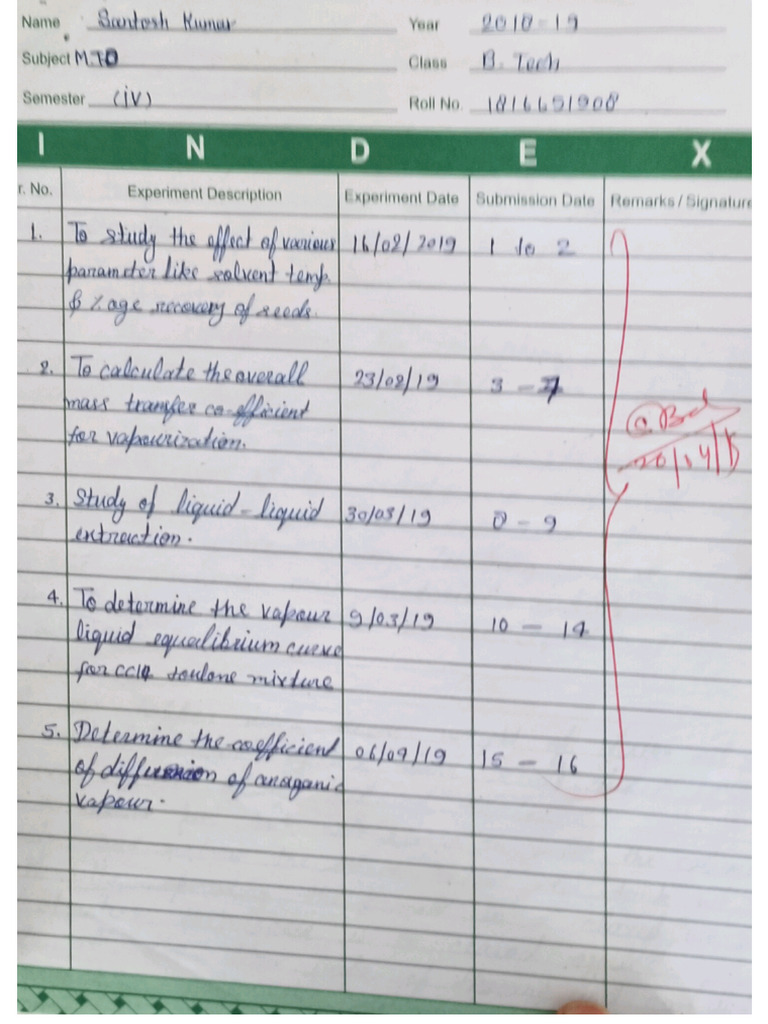 Name Santosh Kumar Year 2018-19
Subject MTO Class B. Tech
Semester (iv) Roll No. 1816651908
I N D E X
r. No. Experiment Description Experiment Date Submission Date Remarks / Signature
1. To study the effect of various 16/02/2019 1 to 2
parameter like solvent temp.
& %age recovery of seeds.
2. To calculate the overall 23/02/19 3 - 7
mass transfer co-efficient
for vapourization.
3. Study of liquid-liquid 30/03/19 8 - 9
extraction.
4. To determine the vapour 9/03/19 10 - 14
liquid equalibrium curve
for CCl4 toulone mixture
5. Determine the coefficient 06/04/19 15 - 16
of diffusion of anorganic
vapour.